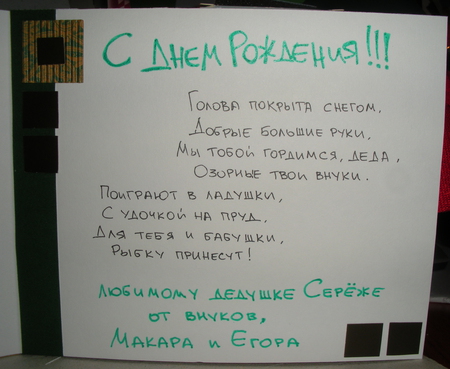 С Днем Рождения!!!
Голова покрыта снегом,
Добрые большие руки,
Мы тобой гордимся, деда,
Озорные твои внуки.
Поиграют в ладушки,
С удочкой на пруд,
Для тебя и бабушки,
Рыбку принесут!
Любимому дедушке Серёже
от внуков,
Макара и Егора